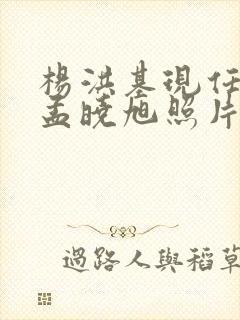 楊洪基現任
孟曉旭照片
過路人與稻草